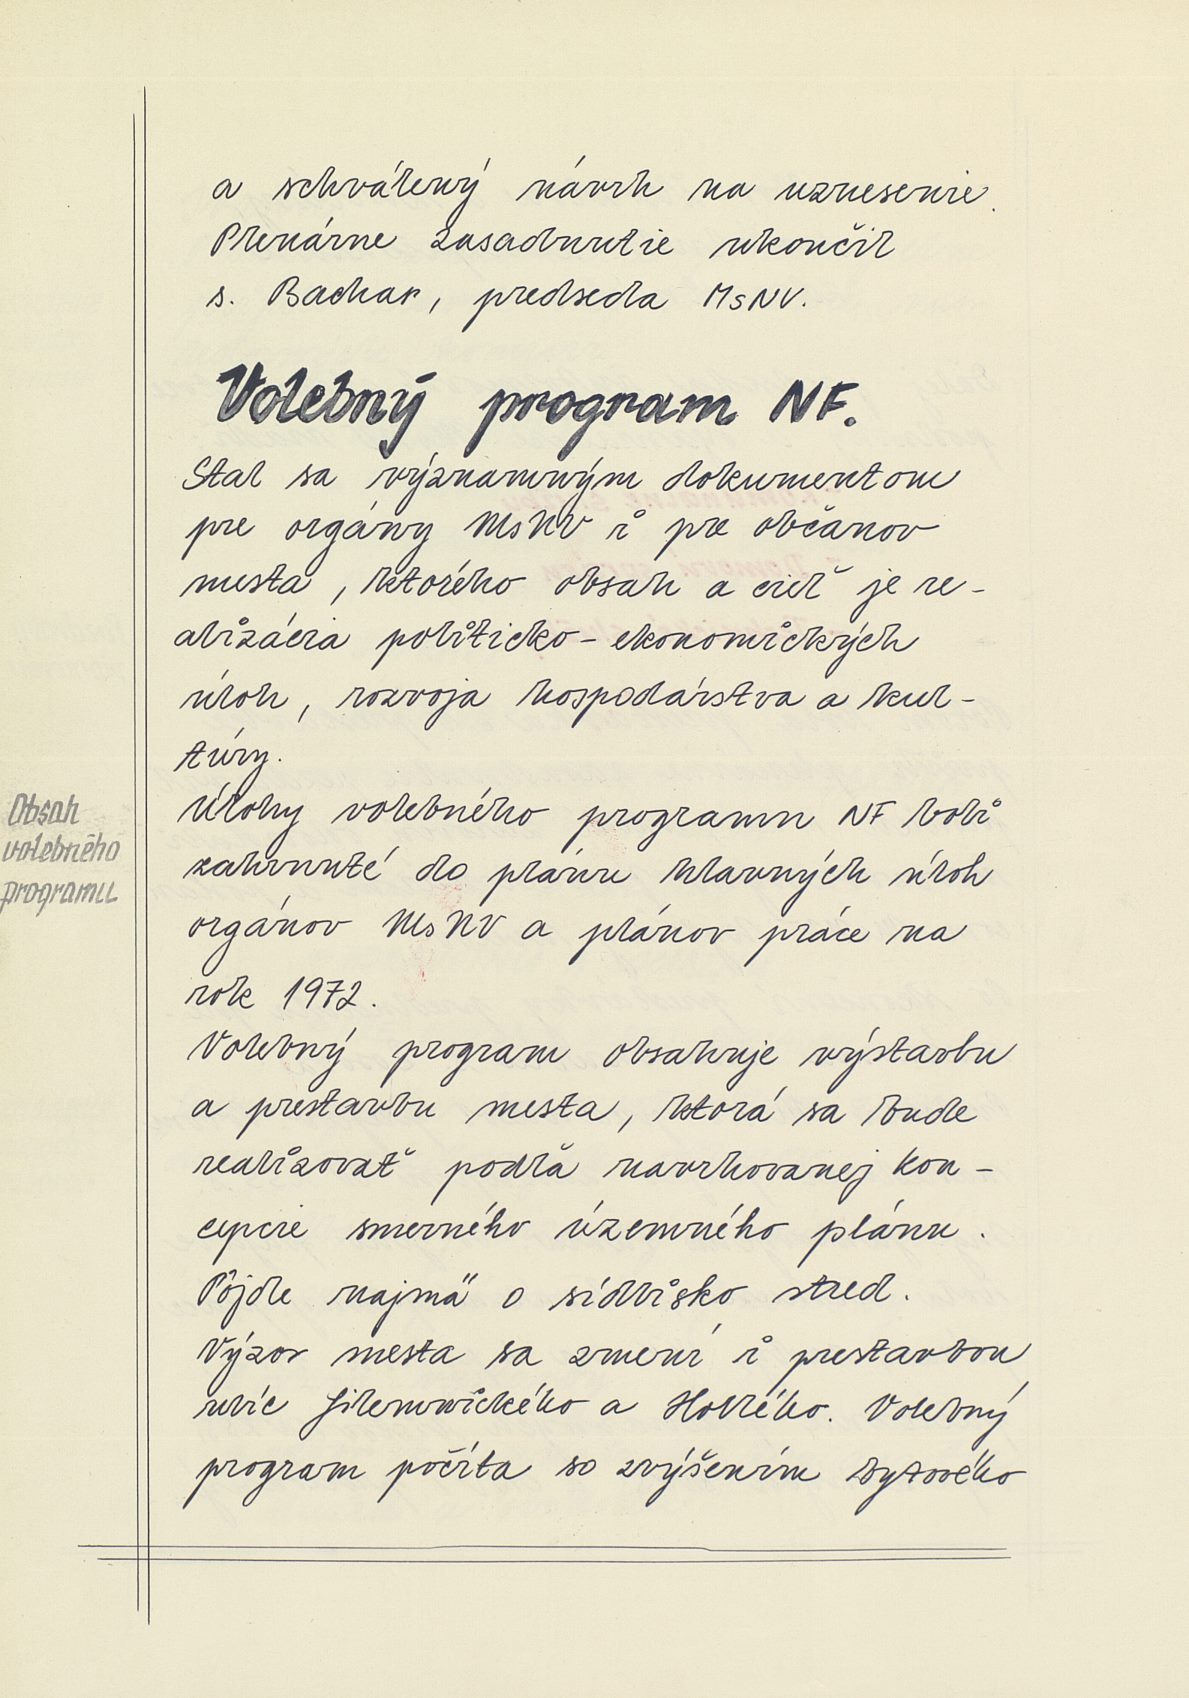 a schválený návrh na uznesenie.
Plenárne zasadnutie ukončil
s. Bachar, predseda MsNV.
Volebný program NF.
Stal sa významným dokumentom
pre orgány MsNV i pre občanov
mesta, ktorého obsah a cieľ je re-
alizácia politicko-ekonomických
úloh, rozvoja hospodárstva a kul-
túry.
Obsah
volebného
programu
Úlohy volebného programu NF boli
zahrnuté do plánu hlavných úloh
orgánov MsNV a plánov práce na
rok 1972.
Volebný program obsahuje výstavbu
a prestavbu mesta, ktorá sa bude
realizovať podľa navrhovanej kon-
cepcie smerného územného plánu.
Pôjde najmä o sídlisko stred.
Výzor mesta sa zmení i prestavbou
ulíc Jilemnického a Hollého. Volebný
program počíta so zvýšením bytového